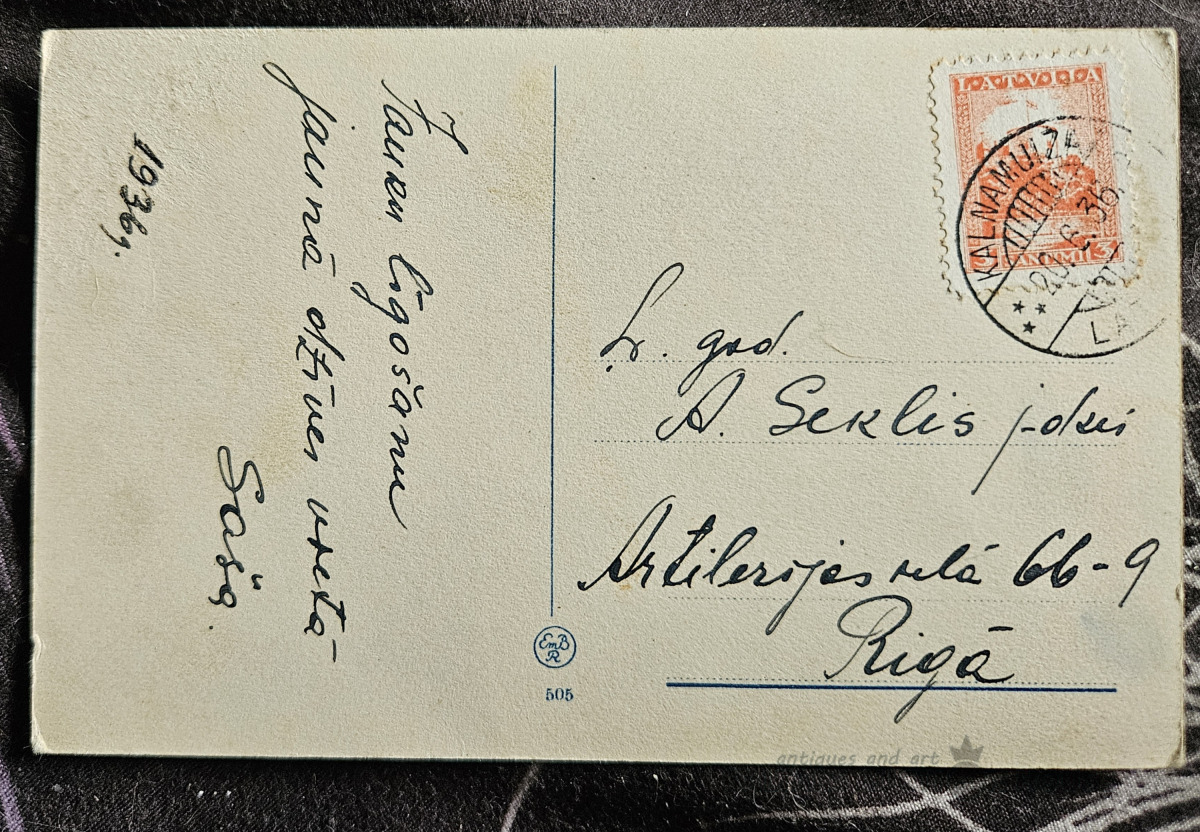 Jauku līgošanu
jaunā dzīves vietā
Saša.
1936g.
LATVIJA
3 SANTIMI 3
KALNAMUIŽA
20.6.36
L. god.
A. Seklis j-dzei
Artilerijas ielā 66-9
Rigā
EmB
R
505
antiques and art